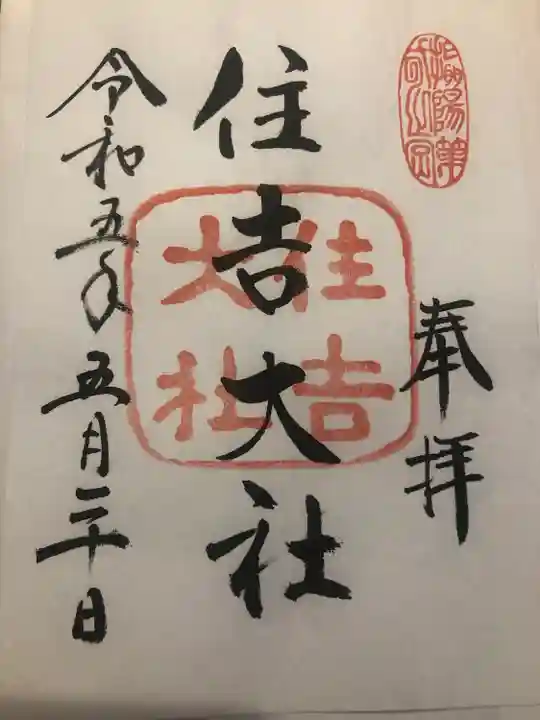 奉拝
住吉大社
住吉
大社
令和五年五月二十日